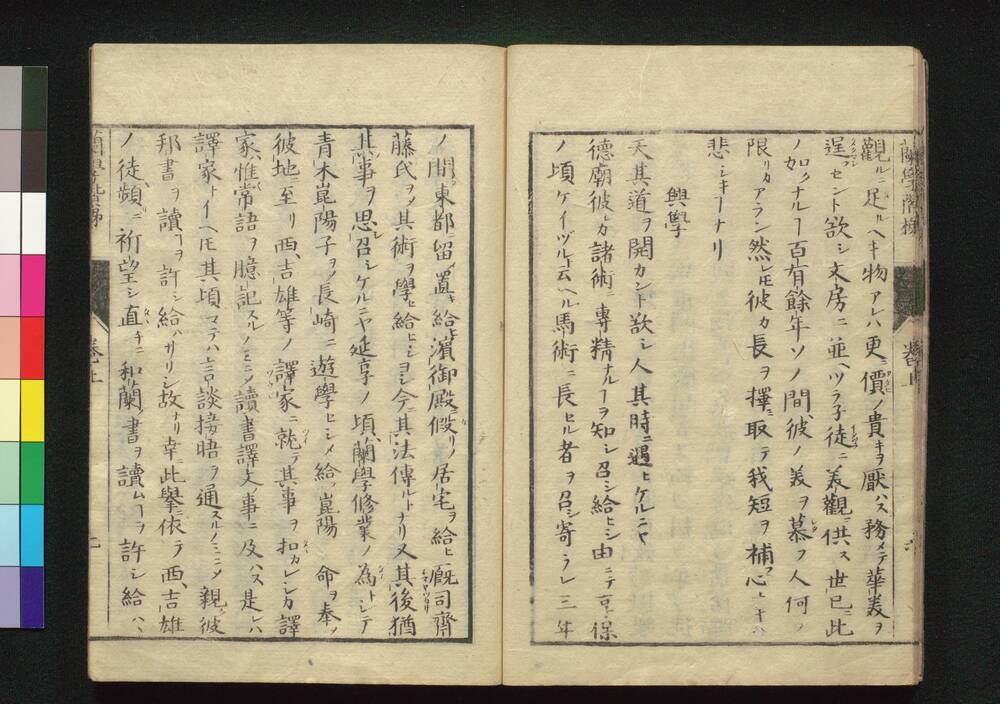 蘭學階梯
卷上
觀ルニ足ルヘキ物アレハ更ニ價ノ貴キヲ厭ハス務メテ華美ヲ
逞フセント欲シ文房ニ並ヘツラ子徒ニ美觀ニ供ス世已ニ此
ノ如クナルヿ百有餘年ソノ間、彼ノ美ヲ慕フ人何ノ
限リカアラン然レ𪜈彼カ長ヲ擇ミ取テ我短ヲ補フ心ナキハ
悲シキヿナリ
興學
天其道ヲ開カント欲シ人其時ニ遇ヒケルニヤ
德廟彼レカ諸術ニ專精ナルヿヲ知シ召シ給ヒシ由ニテ享保
ノ頃ケイヅルト云ヘル馬術ニ長セル者ヲ召シ寄ラレ三年
ノ間タ東都ニ留メ置キ給ヒ濱御殿ニ假リノ居宅ヲ給ヒ厩司齊
藤氏ヲメ其術ヲ學ヒ給ヒシヨシ今ニ其法傳ルトナリ又其後猶
其事ヲ思シ召シケルニヤ延享ノ頃、蘭學修業ノ為トシテ
青木崑陽子ヲメ長崎ニ遊學セシメ給フ崑陽 命ヲ奉ノ
彼地ニ至リ西、吉雄等ノ譯家ニ就テ其事ヲ扣カレシカ譯
家、惟常語ヲ臆記スルノミニメ讀書譯文ノ事ニ及ハス是レハ
譯家トイヘ𪜈其頃マテハ言談接晤ヲ通スルノミニメ親ク彼
邦書ヲ讀ムヿヲ許シ給ハサリシ故ナリ幸ニ此擧ニ依テ西、吉雄
ノ徒、頻ニ祈望シ直チニ和蘭ノ書ヲ讀ムヿヲ許シ給ハ、
蘭學階梯
卷上
九